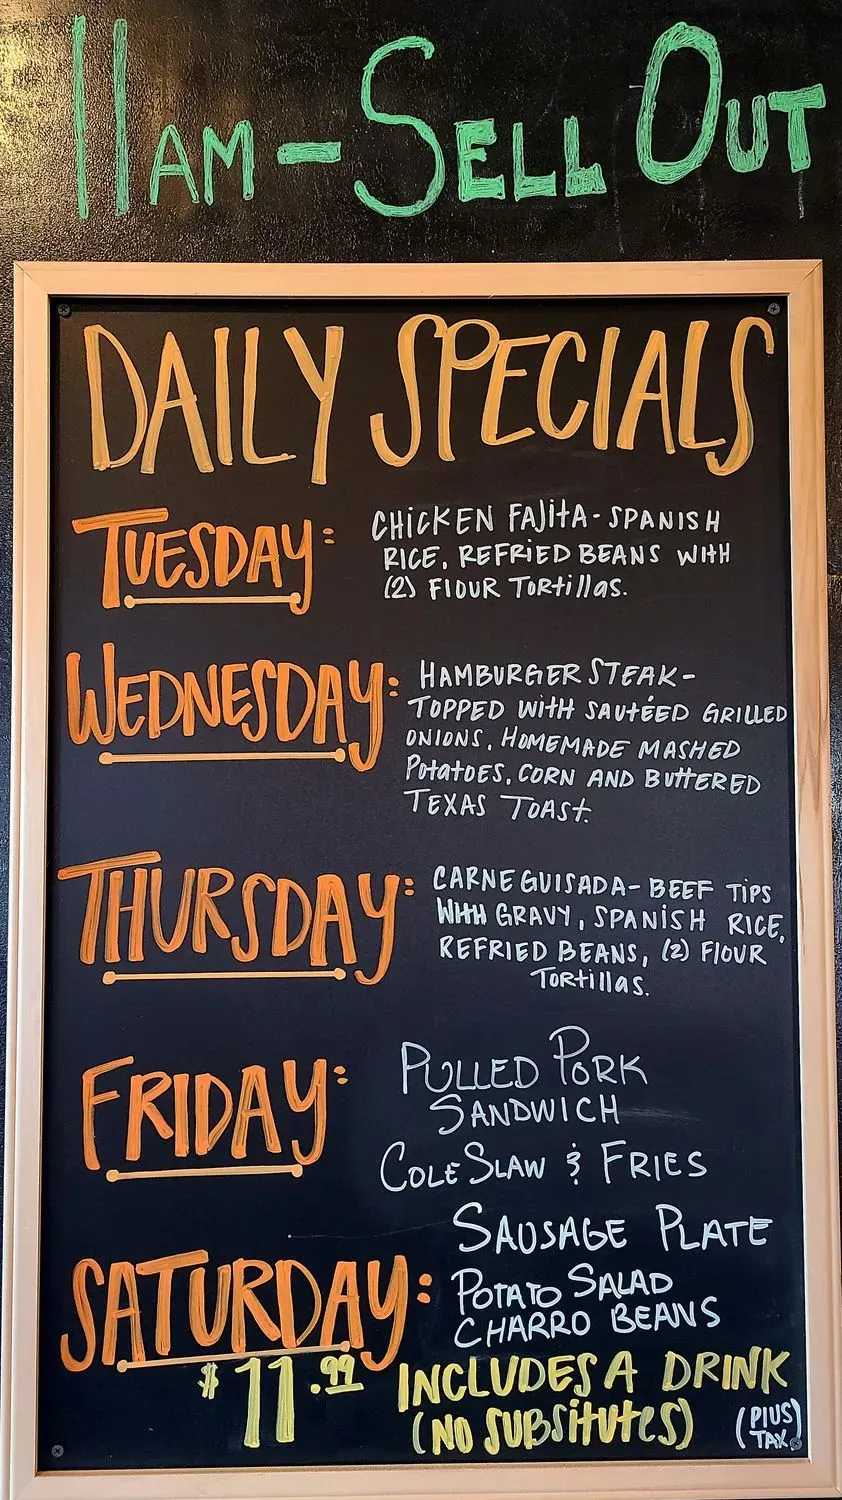 11AM - SELL OUT
DAILY SPECIALS
TUESDAY:
CHICKEN FAJITA - SPANISH
RICE, REFRIED BEANS WITH
(2) FLOUR TORTILLAS.
WEDNESDAY:
HAMBURGER STEAK -
TOPPED WITH SAUTÉED GRILLED
ONIONS, HOMEMADE MASHED
POTATOES, CORN AND BUTTERED
TEXAS TOAST.
THURSDAY:
CARNE GUISADA - BEEF TIPS
WITH GRAVY, SPANISH RICE,
REFRIED BEANS, (2) FLOUR
TORTILLAS.
FRIDAY:
PULLED PORK
SANDWICH
COLE SLAW & FRIES
SATURDAY:
SAUSAGE PLATE
POTATO SALAD
CHARRO BEANS
$11.99 INCLUDES A DRINK
(NO SUBSITUTES) (PLUS TAX)